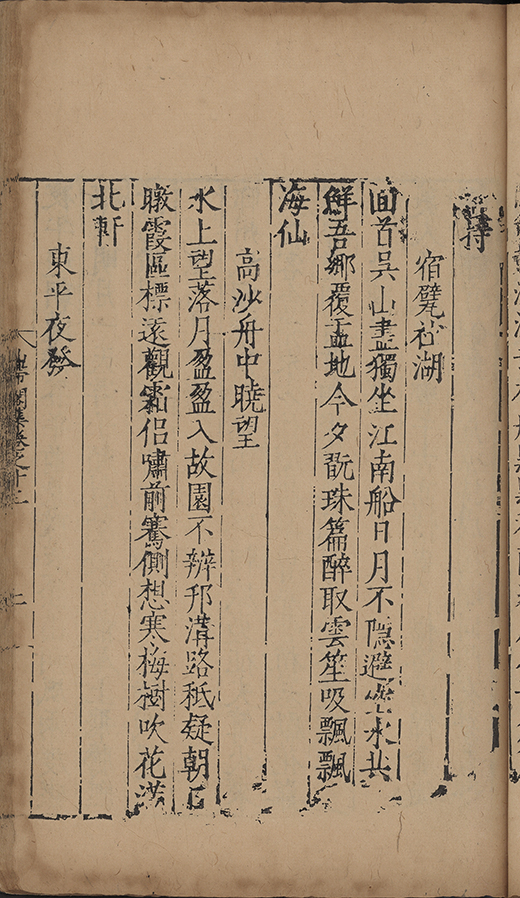 持
宿甓社湖
回首吳山盡獨坐江南船日月不隱避空水共
鮮吾鄉覆盂地今夕翫珠篇醉取雲笙吸飄飄
海仙
高沙舟中曉望
水上望落月盈盈入故園不辨邗溝路秪疑朝日
暾霞區標遠觀霜侶嘯前騫側想寒梅樹吹花滿
北軒
東平夜發
集卷之十二
二